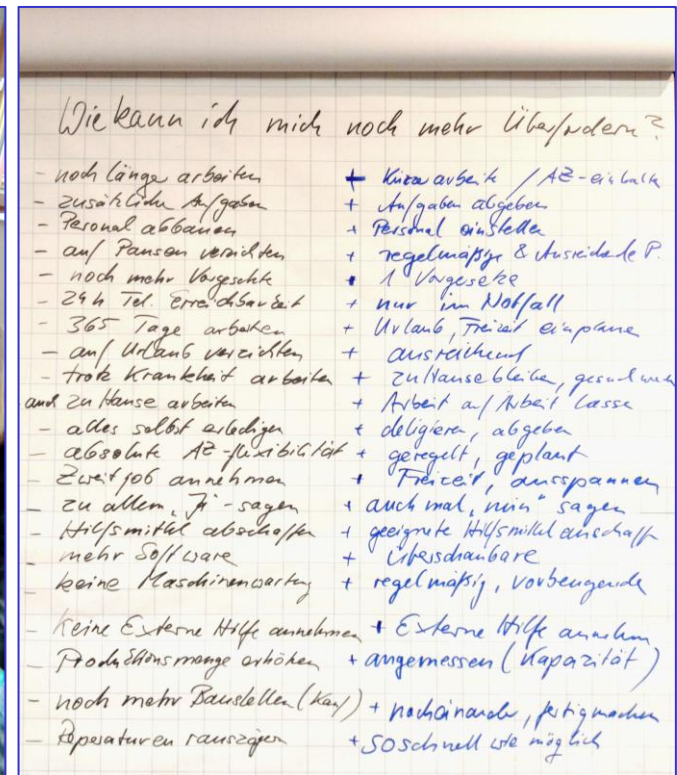 Wie kann ich mich noch mehr Überfordern?
- noch länge arbeiten + Kürze arbeite / AZ-einhalte
- zusätzliche Aufgaben + Aufgaben abgeben
- Personal abbauen + Personal einstelle
- auf Pausen verzichten + regelmäßige & Ausreichende P.
- noch mehr Vorgesetzte + 1 Vorgesetze
- 24 h Tel. Erreichbarkeit + nur im Notfall
- 365 Tage arbeiten + Urlaub, Freizeit einplane
- auf Urlaub verzichten + ausreichend
- trotz Krankheit arbeiten + zu Hause bleiben, gesund
und zu Hause arbeiten + Arbeit auf Arbeit lasse
- alles selbst erledigen + deligieren, abgeben
- absolute AZ-flixibilität + geregelt, geplant
- Zweitjob annehmen + Freizeit, ausspannen
- zu allem „Ja" - sagen + auch mal „nein" sagen
- Hilfsmittel abschaffen + geeignete Hilfsmittel anschaff
- mehr Software + überschaubare
- keine Maschinenwartung + regelmäßig, vorbeugende
- Keine Externe Hilfe annehmen + Externe Hilfe annehm
- Produktionsmenge erhöhen + angemessen (Kapazität)
- noch mehr Baustellen + nacheinander, fertigmachen
- Reperaturen rauszögen + so schnell wie möglich